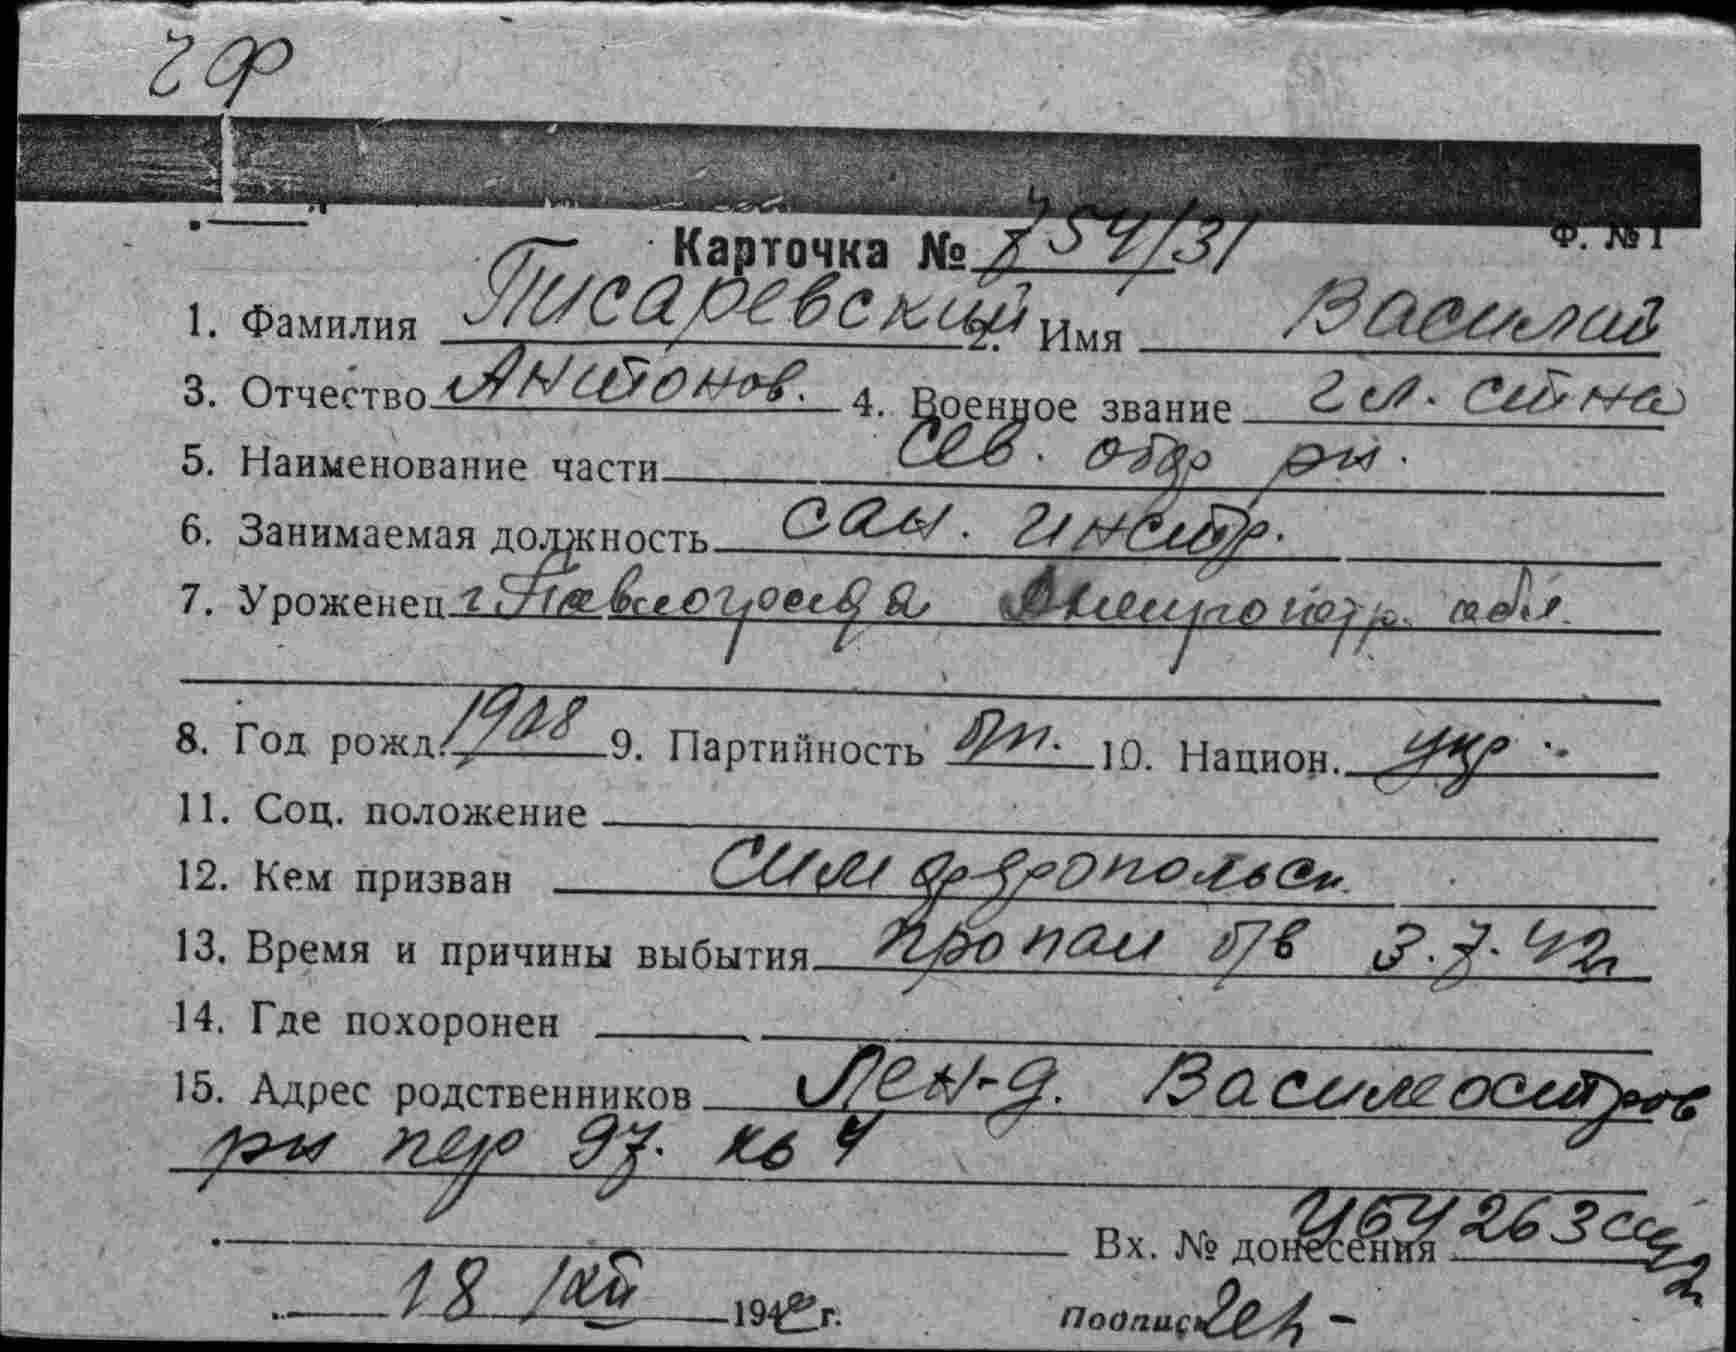 ЧФ
Карточка № 754/31 Ф. № 1
1. Фамилия Писаревский 2. Имя Василий
3. Отчество Антонов. 4. Военное звание гл. ст-на
5. Наименование части Сев. обор рн.
6. Занимаемая должность сан. инстр.
7. Уроженец г Павлограда Днепропетр. обл.
8. Год рожд. 1908 9. Партийность б/п. 10. Национ. укр.
11. Соц. положение
12. Кем призван Симферопольск.
13. Время и причины выбытия пропал б/в 3.7.42г
14. Где похоронен
15. Адрес родственников Лен-д. Василеостров
рн пер 97. кв 4
Вх. № донесения 264263сс
18 /XII 194 г. Подпись